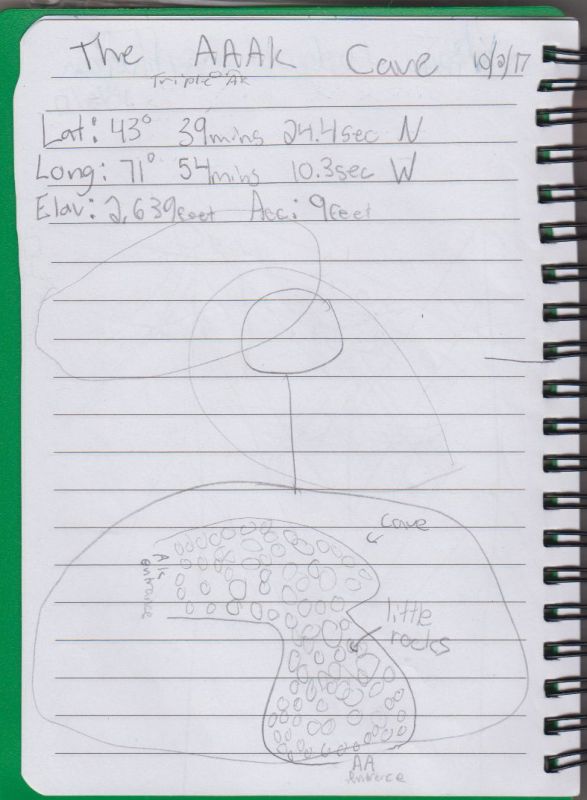 The AAAk Cave 10/9/17
Triple Ak
Lat: 43° 39mins 24.4sec N
Long: 71° 54mins 10.3sec W
Elav: 2,639feet Acc: 9feet
cave
Ak
entrance
little
rocks
AA
entrance